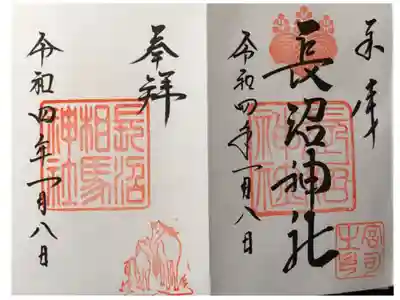 奉拝
長沼神社
令和四年一月八日
宮司
之印
奉拝
長沼
相馬
神社
令和四年一月八日